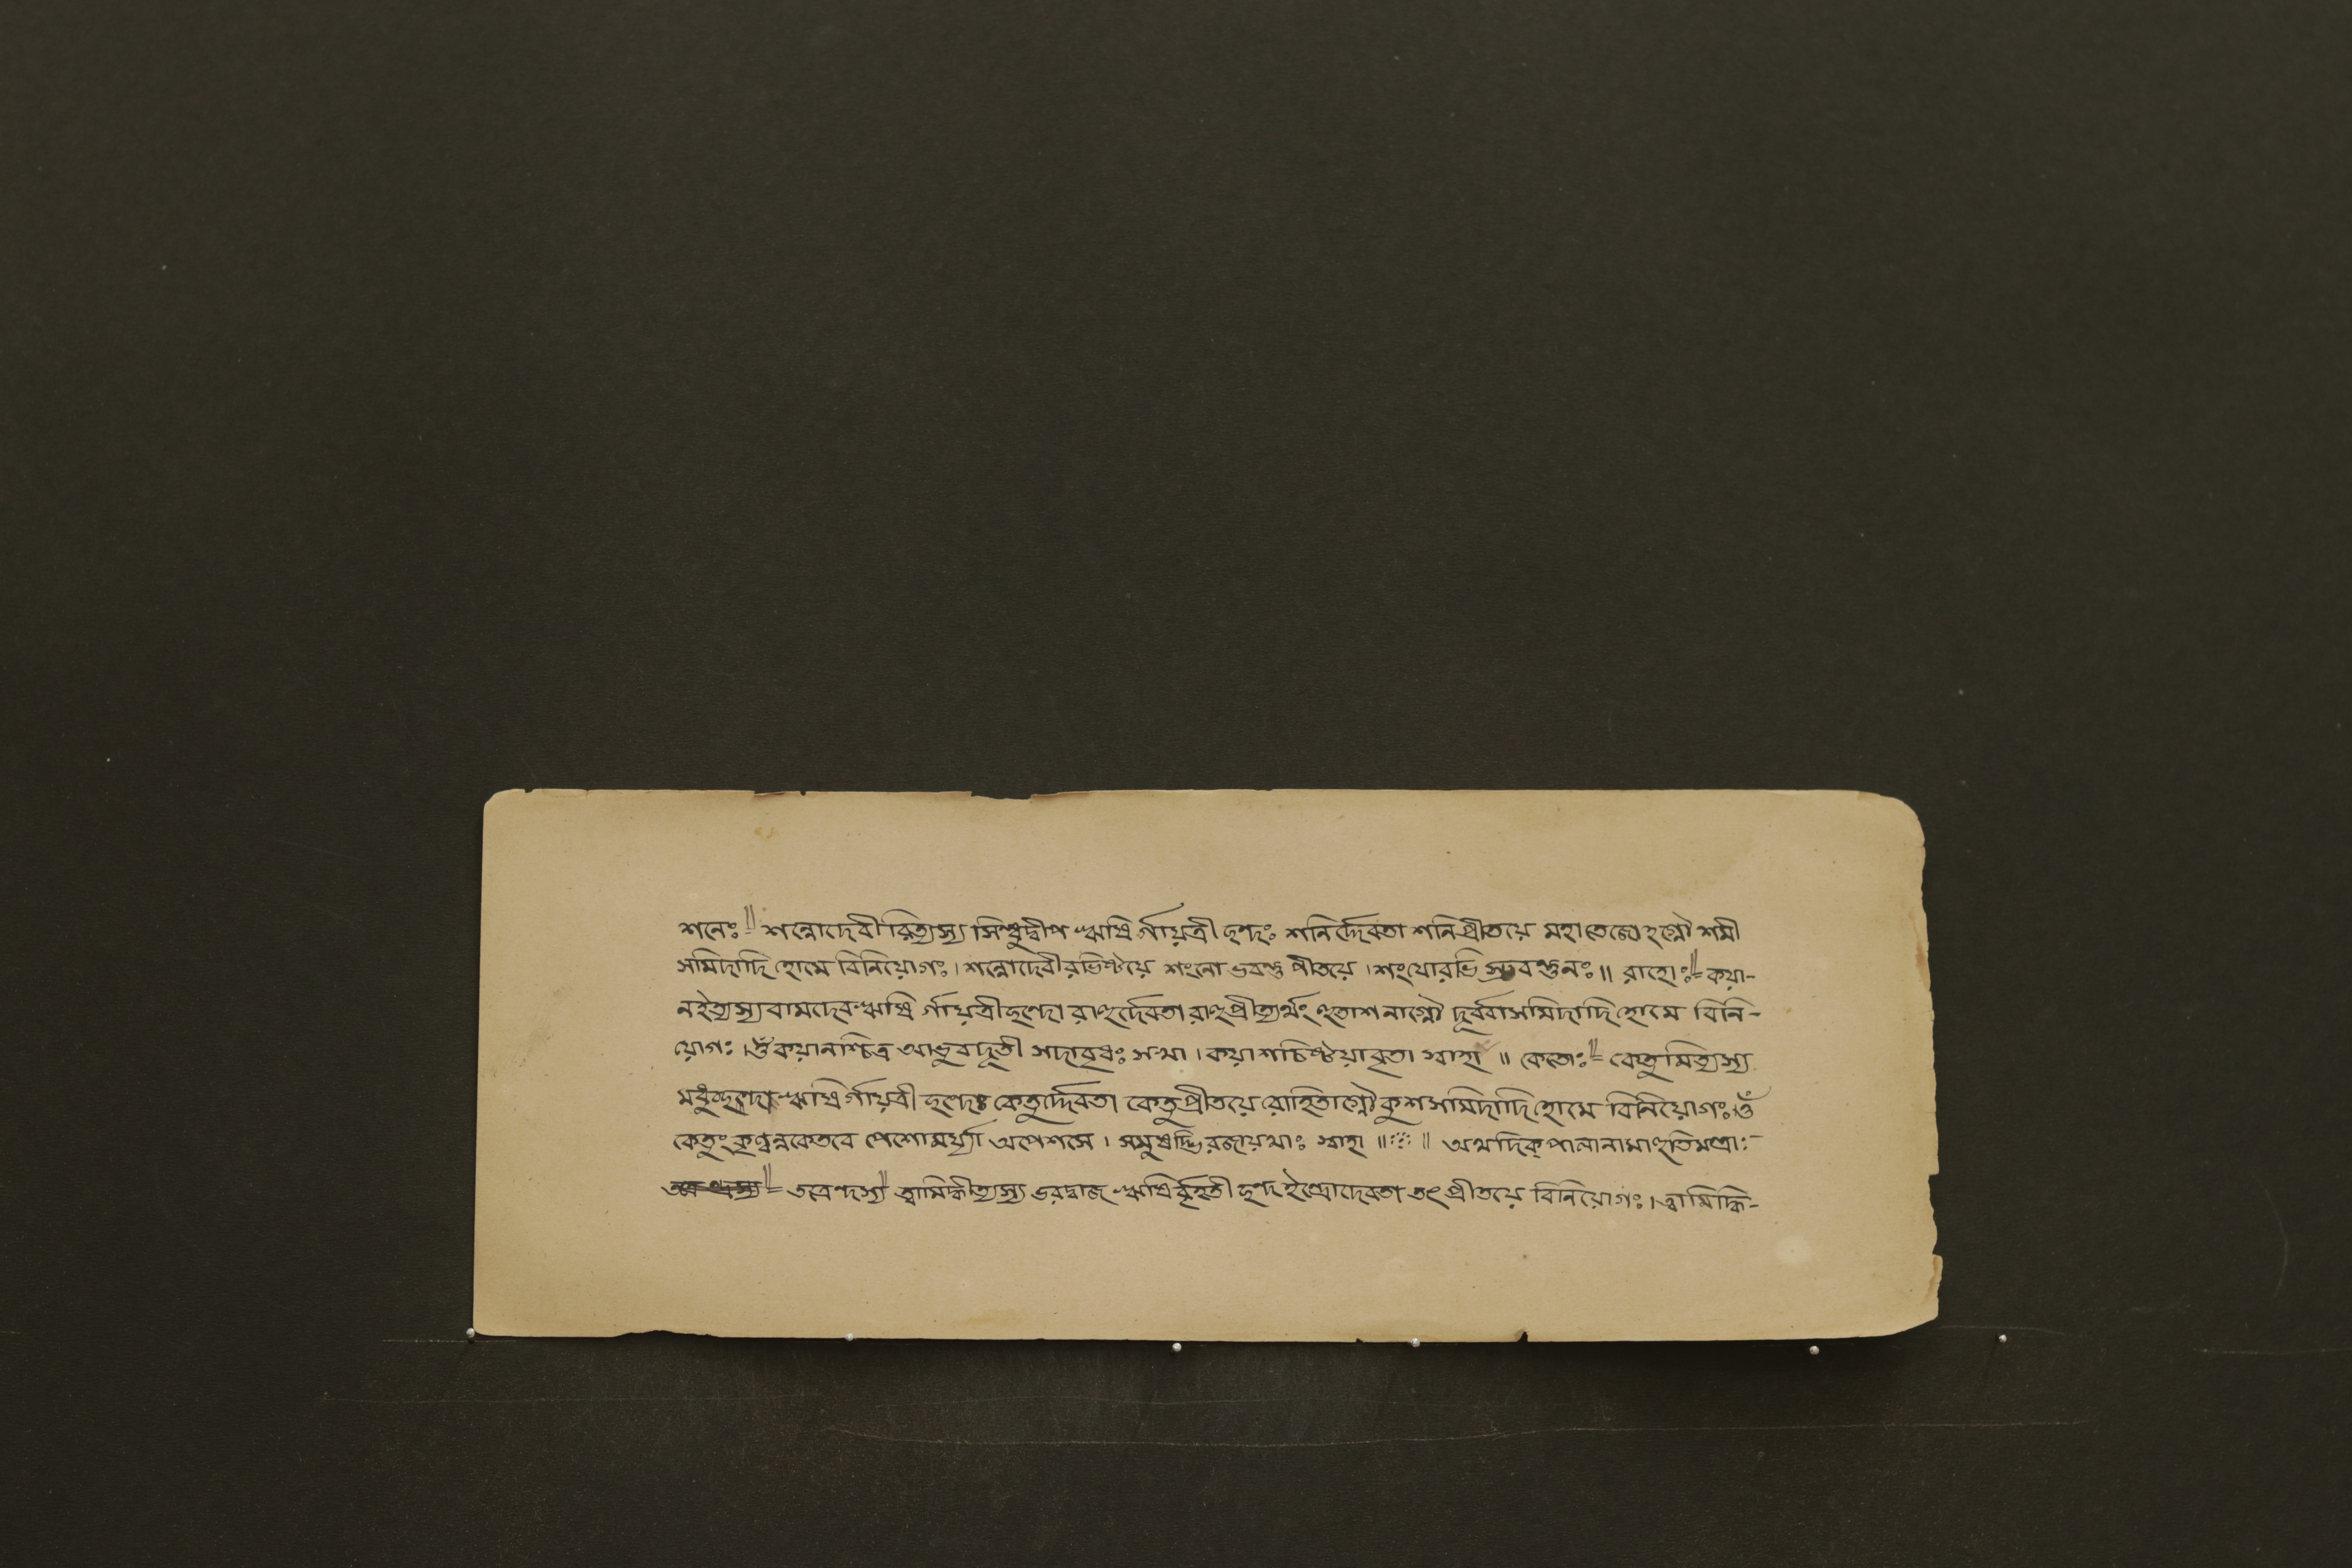 শনেঃ॥= শন্নোদেবীরিত্যস্য সিন্ধুদ্বীপ ঋষির্গায়ত্রী ছন্দঃ শনির্দ্দেবতা শনিপ্রীতয়ে মহাতেজোহগ্নৌ শমী
সমিদাদি হোমে বিনিয়োগঃ। শন্নোদেবীরভিষ্টয়ে শংনো ভবন্তু পীতয়ে। শংযোরভি স্রবন্তুনঃ॥ রাহোঃ॥= কয়া-
নইত্যস্য বামদেব ঋষি র্গায়ত্রীছন্দো রাহুর্দেবতা রাহুপ্রীত্যর্থং হুতাশনাগ্নৌ দূর্ব্বাসমিদাদি হোমে বিনি-
য়োগঃ।ওঁ কয়ানশ্চিত্র আভুবদূতী সদাবৃধঃ সখা। কয়াশচিষ্ঠয়াবৃতা স্বাহা॥ কেতোঃ॥= কেতুমিত্যস্য
মধুচ্ছন্দা ঋষির্গায়ত্রী ছন্দঃ কেতুর্দ্দেবতা কেতুপ্রীতয়ে রোহিতাগ্নৌ কুশসমিদাদি হোমে বিনিয়োগঃ।ওঁ
কেতুং কৃণ্বন্নকেতবে পেশোমর্য্যা অপেশসে। সমুষদ্ভিরজায়থাঃ স্বাহা॥ ॥ অথদিক্পালানামাহুতিমন্ত্রাঃ-
= তত্রেন্দ্রস্য॥ ত্বামিদ্ধীত্যস্য ভরদ্বাজ ঋষির্বৃহতী ছন্দ ইন্দ্রোদেবতা তৎ প্রীতয়ে বিনিয়োগঃ। ত্বামিদ্ধি-